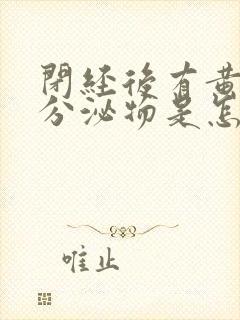 閉經後有黃
分泌物是怎
唯止